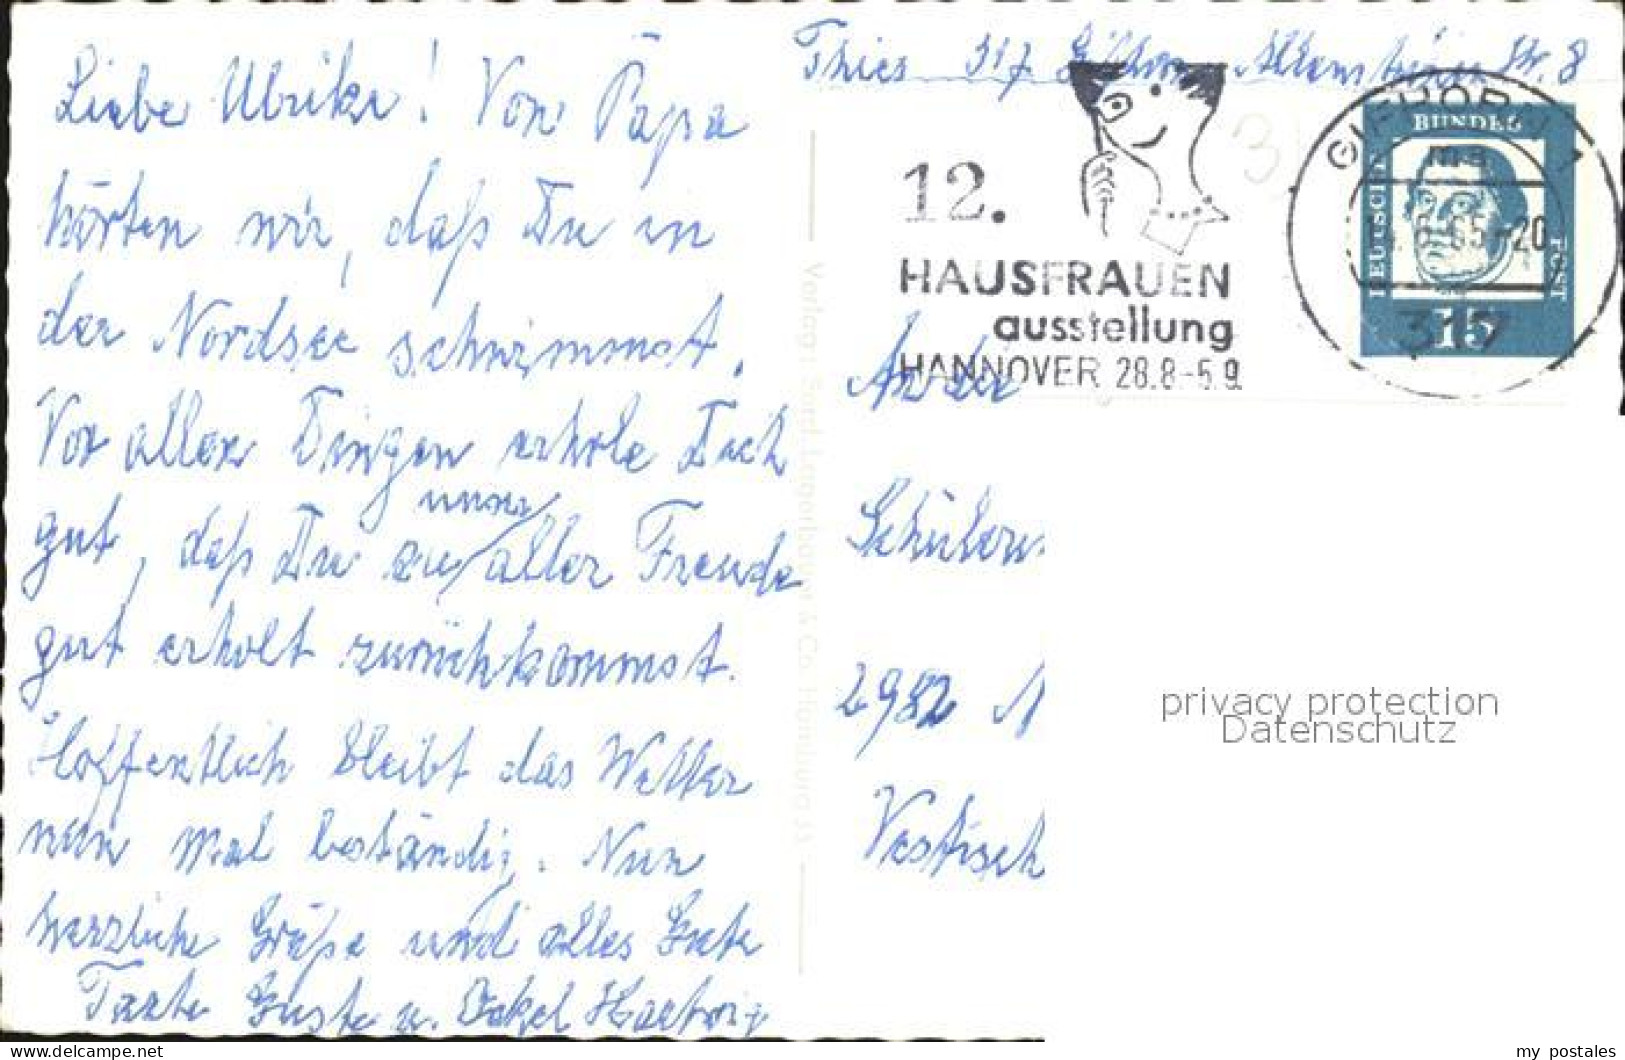 Liebe Ulrike! Von Papa
hörten wir, daß Du in
der Nordsee schwimmst.
Vor allen Dingen erhole Dich
gut, daß Du zu unser aller Freude
gut erholt zurückkommst.
Hoffentlich bleibt das Wetter
nun mal beständig. Nun
herzliche Grüße und alles Gute
Tante Guste u. Onkel Hartwig
Thies 317 Gifhorn Allensteiner Str. 8
12.
HAUSFRAUEN
ausstellung
HANNOVER 28.8-5.9.
GIFHORN 1
ma
65-20
317
DEUTSCHE
BUNDES
POST
15
An der
Schülerin
2982 N
Vestisch
Verlag: & Co. Hamburg 33
privacy protection
Datenschutz
delcampe.net
my_postales